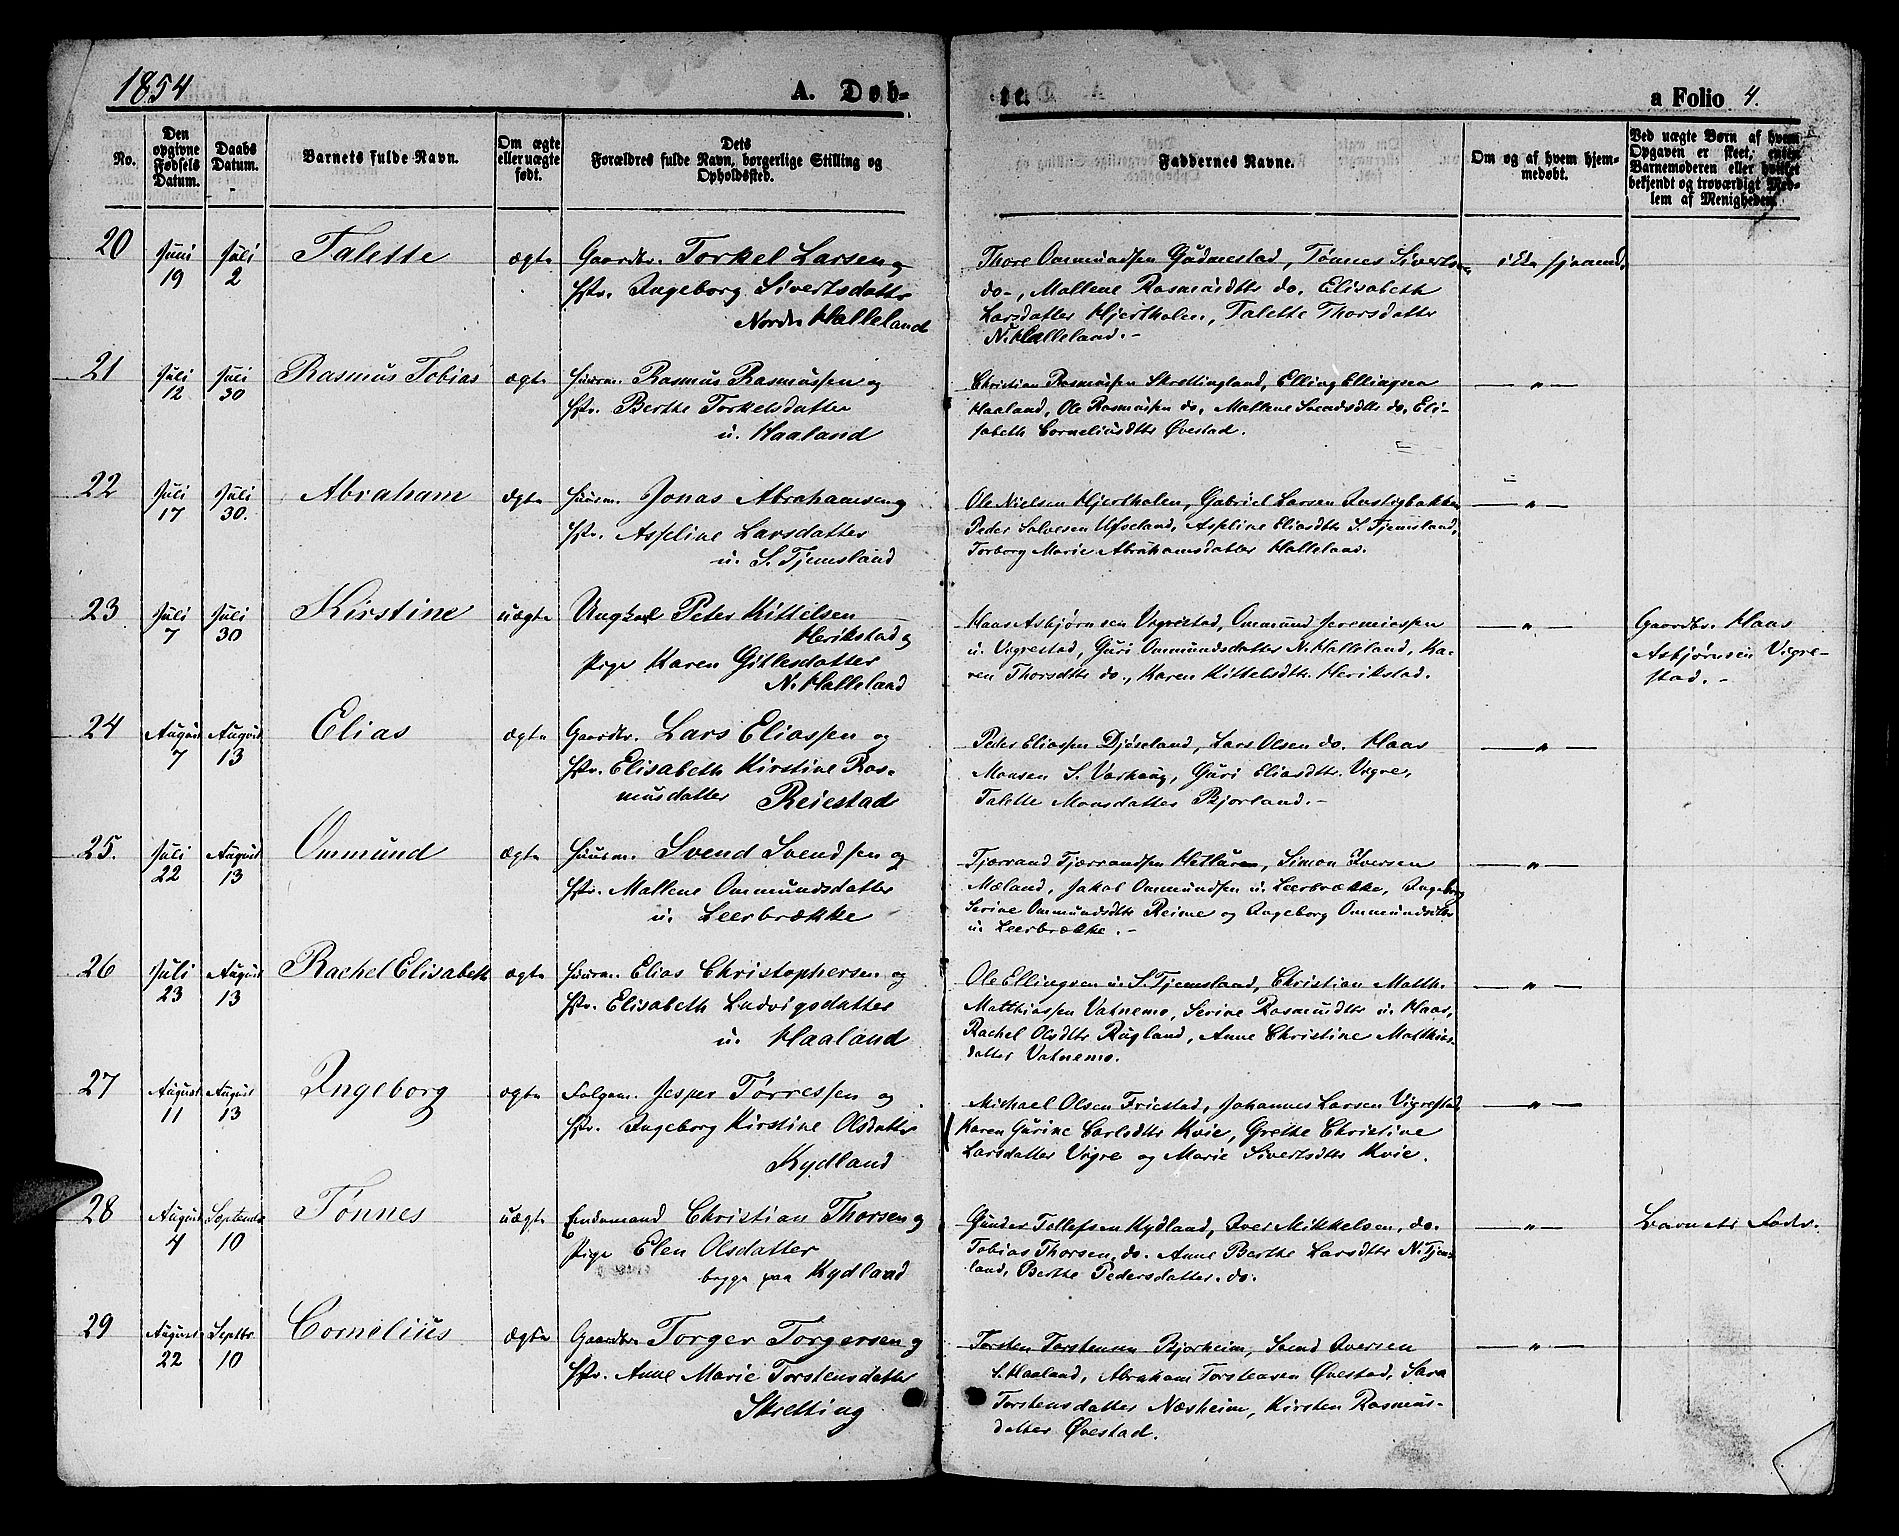 1854
A. Døb-
te.
a Folio 4.
No.
Den opgivne Fødsels Datum.
Daabs Datum.
Barnets fulde Navn.
Om ægte eller uægte født.
Dets Forældres fulde Navn, borgerlige Stilling og Opholdssted.
Faddernes Navne.
Om og af hvem hjemmedøbt.
Ved uægte Børn af hvem Opgaven er skeet, enten Barnemoderen eller hvilket bekjendt og troværdigt Medlem af Menigheden.
20 Juni 19 Juli 2 Talette ægte Gaardbr. Torkel Larsen og
Hstr. Ingeborg Sivertsdatter
Nordre Halleland
Thore Ommundsen Gudmestad, Tønnes Sivertsen
do-, Mallene Rasmusdttr do. Elisabeth
Larsdatter Hjertholen, Talette Thorsdatter
N. Halleland.-
ikke hjemmed.
21 Juli 12 Juli 30 Rasmus Tobias ægte Huusm. Rasmus Rasmussen og
Hstr. Berthe Torkelsdatter
u. Haaland
Christian Rasmussen Skrettingland, Elling Ellingsen
Haaland, Ole Rasmussen do, Mallene Svendsdttr do, Eli-
sabeth Corneliusdttr Øvestad.
— " —
22 Juli 17 Juli 30. Abraham ægte Huusm. Jonas Abrahamsen og
Hstr. Asseline Larsdatter
u. S. Tjemsland
Ole Nielsen Hjertholen, Gabriel Larsen
Peder Salvesen Ufseland, Asseline Eliasdttr S. Tjemsland,
Torborg Marie Abrahamsdatter Halleland.
— " —
23 Juli 7 Juli 30 Kirstine uægte Ungkarl Peter Kittelsen
Herikstad og
Pige Karen Gitlesdatter
N. Halleland
Haas Asbjørnsen Vigrestad, Ommund Jeremiassen
u. Vigrestad, Guri Ommundsdatter N. Halleland, Ka-
ren Thorsdttr do., Karen Kittelsdttr. Herikstad.
— " —
Gaardbr. Haas
Asbjørnsen Vigre-
stad.-
24 August 7 August 13 Elias ægte Gaardbr. Lars Eliassen og
Hstr. Elisabeth Kirstine Ras-
musdatter Reiestad
Peter Eliassen Djøseland, Lars Olsen do. Haas
Monsen S. Varhaug, Guri Eliasdttr. Vigre,
Talette Monsdatter Bjorland.-
— " —
25. Juli 22 August 13 Ommund ægte Huusm. Svend Svendsen og
Hstr. Mallene Ommundsdatter
u. Leerbrække
Tjærrand Tjærrandsen Hetland, Simon Iversen
Mæland, Jakob Ommundsen u. Leerbrække, Ingeborg
Serine Ommundsdttr Reime og Ingeborg Ommundsdttr
u. Leerbrække.-
— " —
26 Juli 23 August 13 Rachel Elisabeth ægte Huusm. Elias Christophersen og
Hstr. Elisabeth Ludvigsdatter
u. Haaland
Ole Ellingsen u. S. Tjemsland, Christian Matth.
Matthiassen Vatnemo, Serine Rasmusdttr u. Haas,
Rachel Olsdttr Rugland, Anne Christine Matthias-
datter Vatnemo.
— " —
27 August 11 August 13 Ingeborg ægte Folgem. Jesper Tørressen og
Hstr. Ingeborg Kirstine Olsdatter
Kydland
Michael Olsen Friestad, Johannes Larsen Vigrestad,
Karen Gurine Carlsdttr Kvie, Grethe Christine
Larsdatter Vigre og Marie Sivertsdttr Kvie.
— " —
28 August 4 September 10 Tønnes uægte Enkemand Christian Thorsen og
Pige Elen Olsdatter
begge paa Kydland
Gunder Tollefsen Kydland, Iver Mikkelsen, do.
Tobias Thorsen, do. Anne Berthe Larsdttr N. Tjems-
land, Berthe Pedersdatter. do.
— " —
Barnets Fader.
29 August 22 Septbr. 10 Cornelius ægte Gaardbr. Torger Torgersen og
Hstr. Anne Marie Torstensdatter
Skretting
Torsten Torstensen Bjorheim, Svend Iversen
S. Haaland, Abraham Torstensen Øvestad, Sara
Torstensdatter Næsheim, Kirsten Rasmus-
datter Øvestad.
— " —